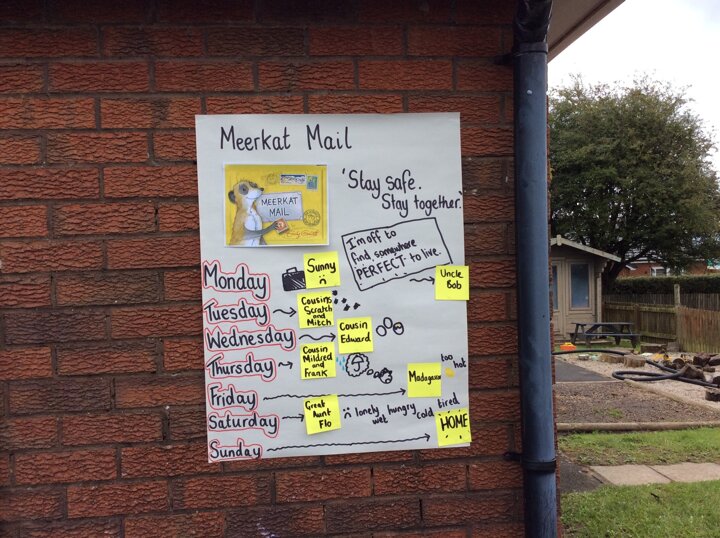 Meerkat Mail
MEERKAT
MAIL
'Stay safe.
Stay together.'
I'm off to
find somewhere
PERFECT to live.
Monday
Sunny
Uncle
Bob
Tuesday
Cousins
Scratch
and
Mitch
Wednesday
Cousin
Edward
Thursday
Cousin
Mildred
and
Frank
Friday
Madagascar
too
hot
Saturday
Great
Aunt
Flo
lonely hungry tired
wet cold
Sunday
HOME